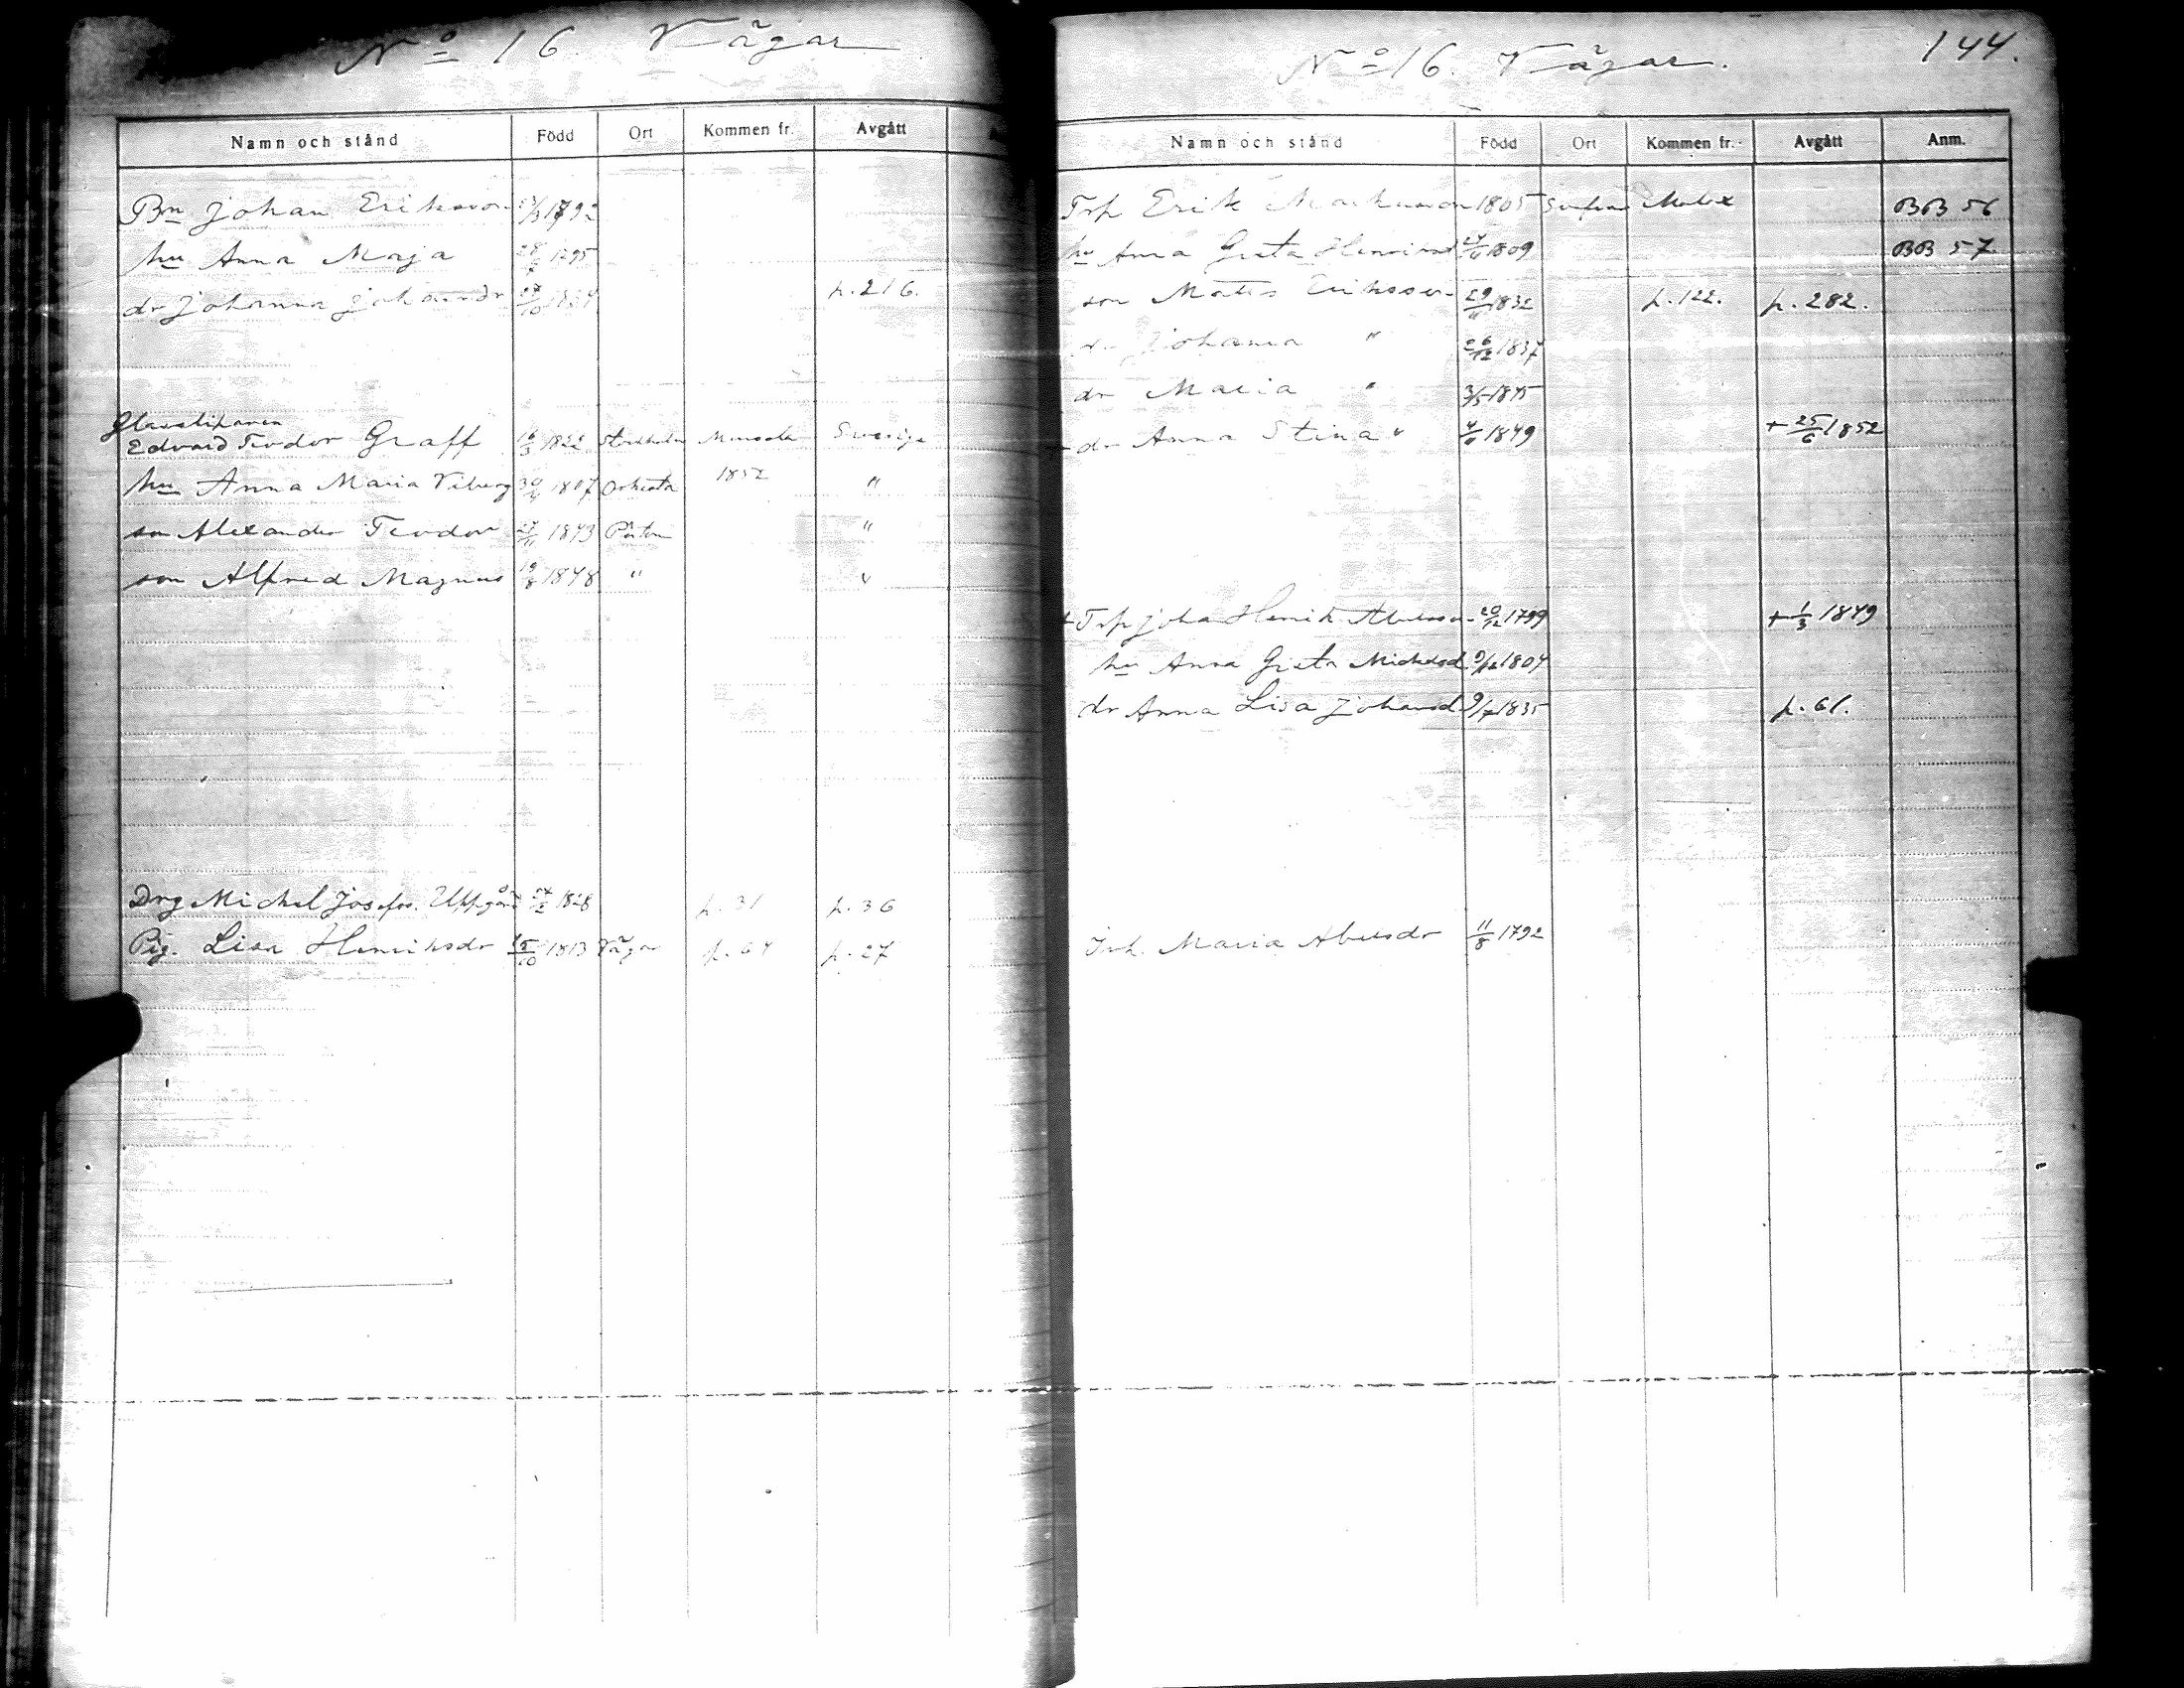 No 16 Vägar
Namn och stånd Född Ort Kommen fr. Avgått
Bn Johan Eriksson /3 1792
hu Anna Maja 1795
dr Johanna Johansdr 27/10 p. 216.
Glassliparen
Edvard Teodor Graff 16/3 1822 Stockholm Sverige
hu Anna Maria Viberg 30/4 1807 1852 "
son Alexander Teodor 27/11 1843 "
son Alfred Magnus 19/8 1848 " "
Drg Michel Josefss. Uppgård 1828 p. 31 p. 36
Pig. Lisa Henriksdr 15/10 1813 Vägar p. 64 p. 27
No 16. Vägar. 144.
Namn och stånd Född Ort Kommen fr. Avgått Anm.
Trp Erik Markusson 1805 Malax BB 56
hu Anna Greta Henriksd 1809 BB 57.
son Mats Eriksson 29/11 1832 p. 122. p. 282.
dr Johanna " 26/12 1837
dr Maria " 3/5 1845
dr Anna Stina " 4/6 1849 + 25/6 1852
+ Trp Joha Henrik Abelsson 20/12 1799 + 1/3 1849
hu Anna Greta Michelsd. 9/12 1804
dr Anna Lisa Johansd 9/7 1835 p. 61.
Inh. Maria Abelsdr 11/8 1792